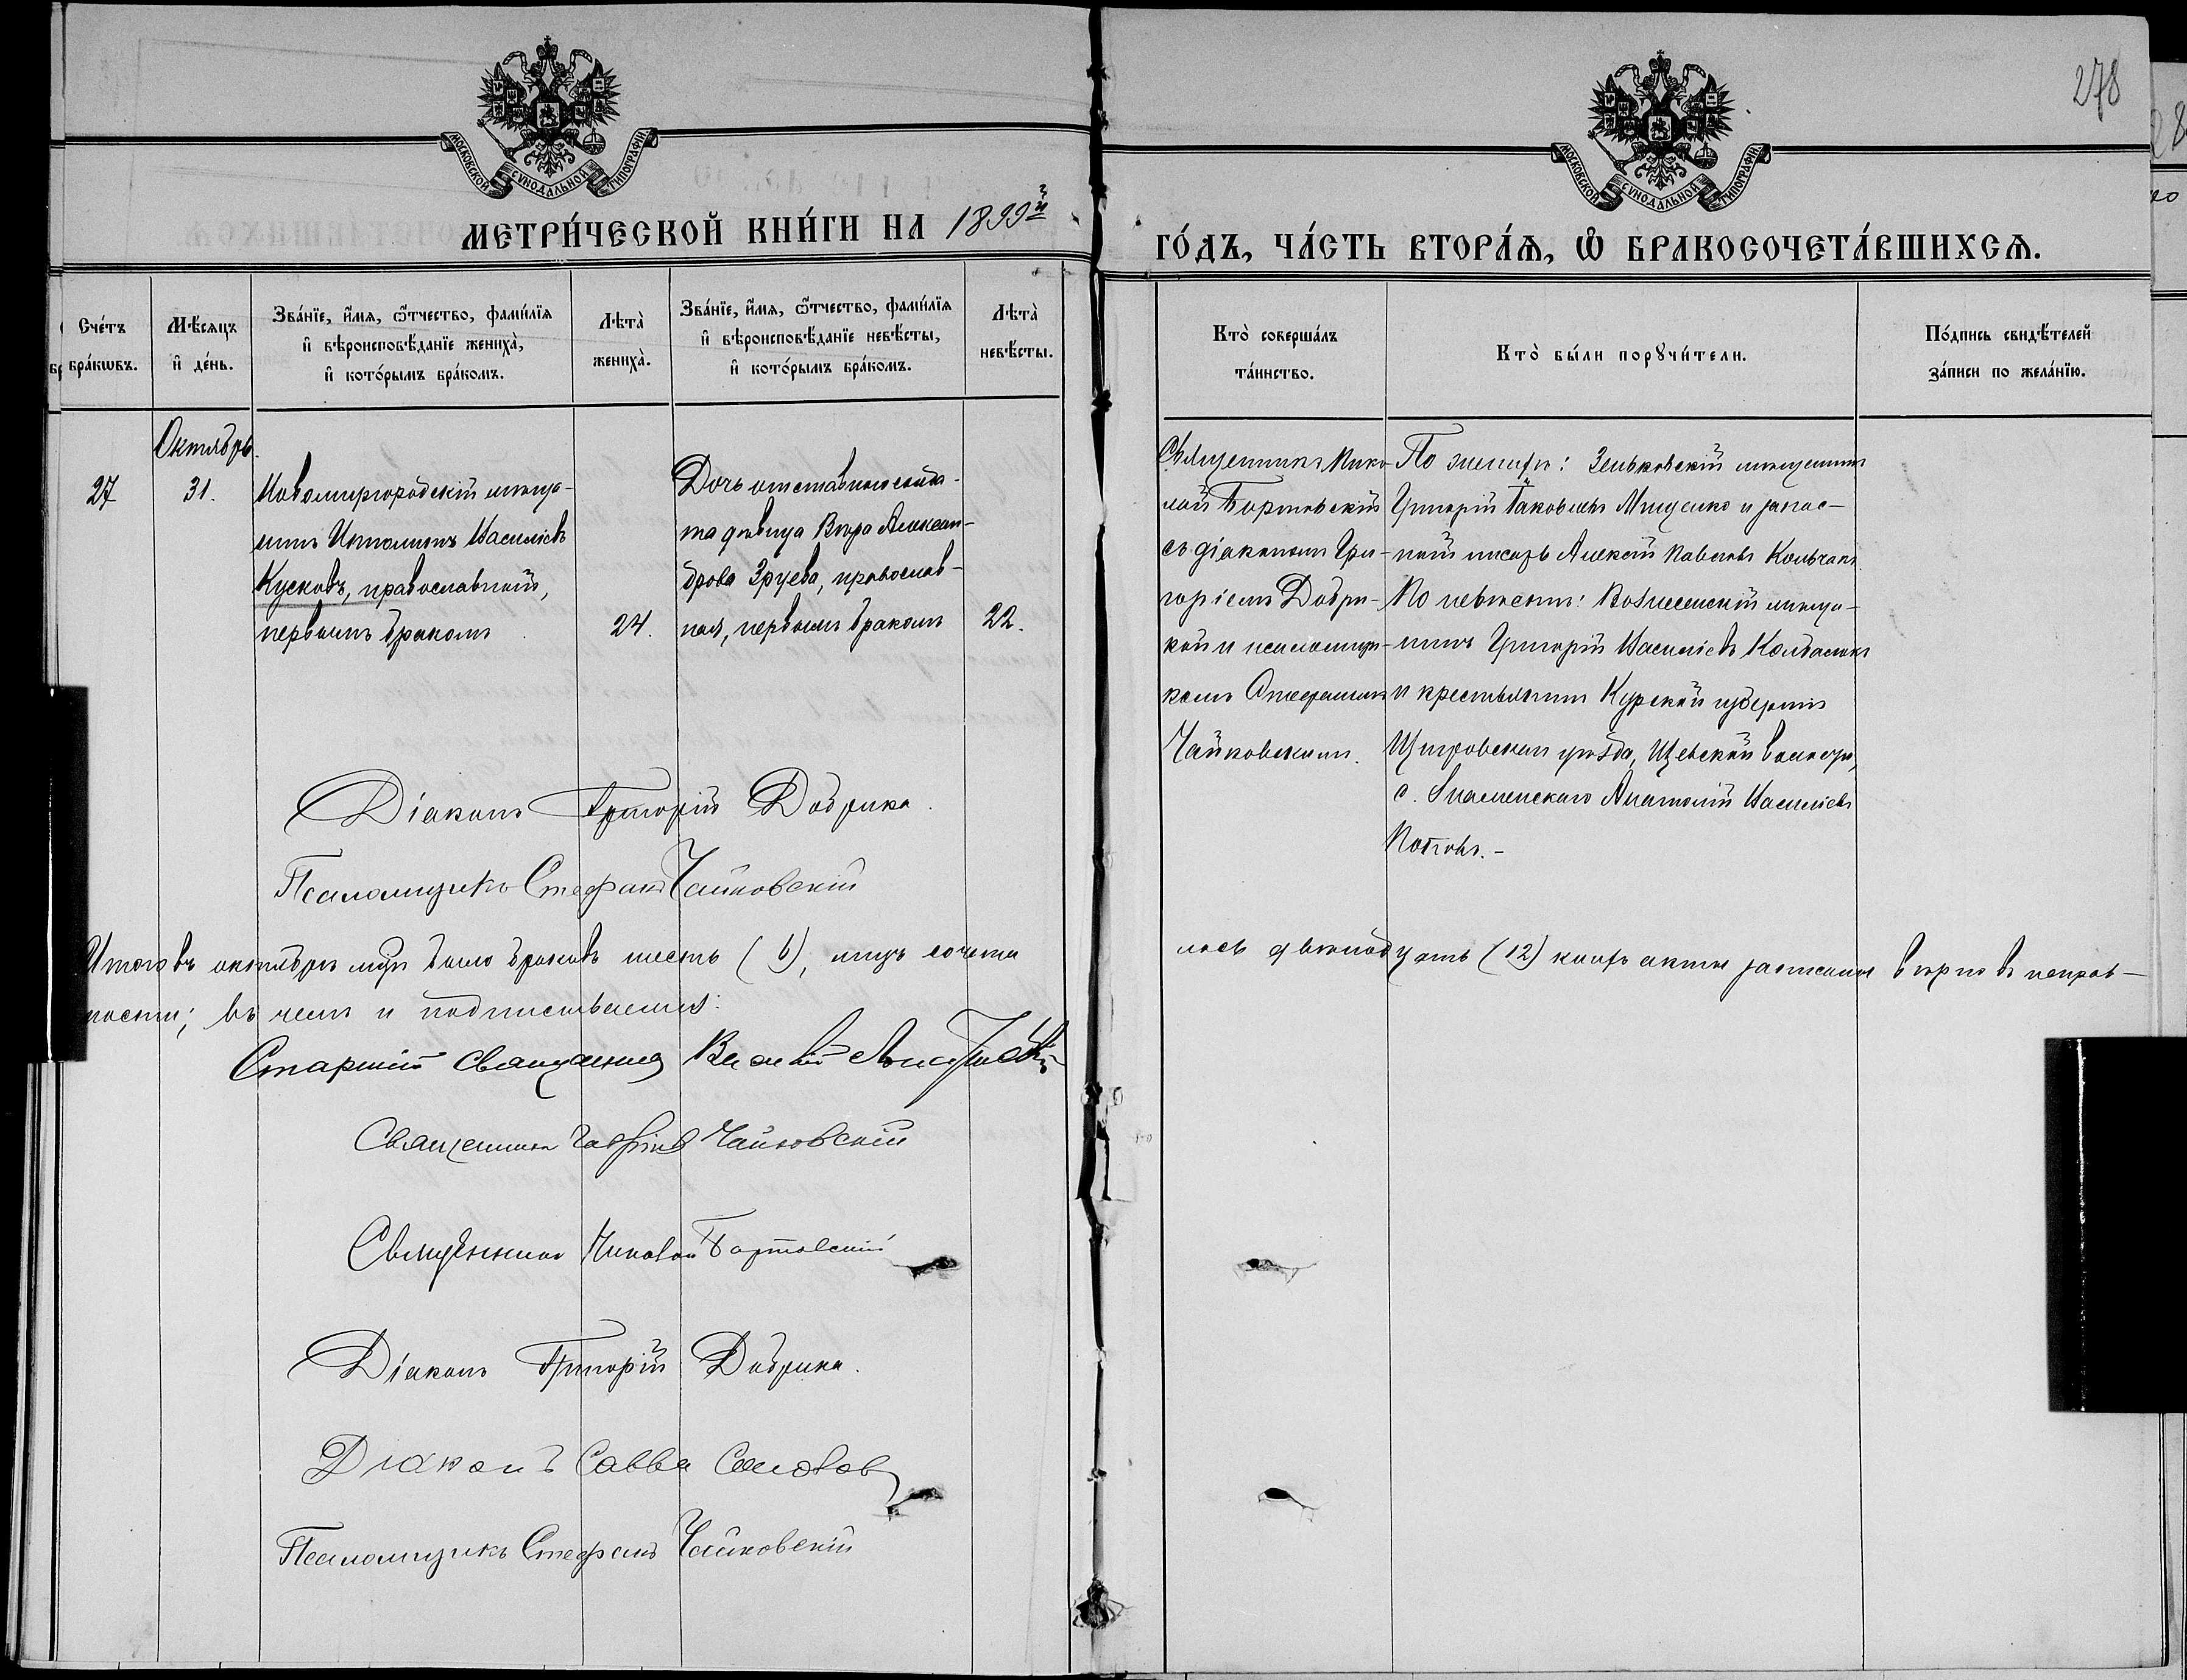 278
МОСКОВСКОЙ СѴНОДАЛЬНОЙ ТИПОГРАФІИ
МОСКОВСКОЙ СѴНОДАЛЬНОЙ ТИПОГРАФІИ
МЕТРИ́ЧЕСКОЙ КНИ́ГИ НА 1899й
ГО́ДЪ, ЧА́СТЬ ВТОРА́Ѧ, Ѿ БРАКОСОЧЕТА́ВШИХСѦ.
Сче́тъ бра́кѡвъ.
Мѣ́сяцъ и де́нь.
Зва́нїе, и҆́мѧ, ѻ҆́тчество, фами́лїѧ и҆ вѣроисповѣ́данїе жениха̀, и҆ кото́рымъ бра́комъ.
Лѣта̀ жениха̀.
Зва́нїе, и҆́мѧ, ѻ҆́тчество, фами́лїѧ и҆ вѣроисповѣ́данїе невѣ́сты, и҆ кото́рымъ бра́комъ.
Лѣта̀ невѣ́сты.
Кто̀ соверша́лъ та́инство.
Кто̀ бы́ли порꙋчи́тели.
По́дпись свидѣ́телей за́писи по жела́нїю.
Октябрь.
27
31.
Новомиргородскій мѣща-
нинъ Ипполитъ Васильевъ
Кусковъ, православный,
первымъ бракомъ
24.
Дочь отставного солда-
та дѣвица Вѣра Алексан-
дрова Зруева, православ-
ная, первымъ бракомъ
22.
Священникъ Нико-
лай Бортовскій
съ діакономъ Гри-
горіемъ Добри-
кой и псаломщи-
комъ Стефаномъ
Чайковскимъ.
По женихѣ: Зеньковскій мѣщанинъ
Григорій Яковлевъ Мищенко и запас-
ный писарь Алексѣй Павловъ Колчакъ.
По невѣстѣ: Вознесенскій мѣща-
нинъ Григорій Васильевъ
и крестьянинъ Курской губерніи
Щигровскаго уѣзда, волости,
с. Знаменскаго Анатолій Васильевъ
Діаконъ Григорій Добрика.
Псаломщикъ Стефанъ Чайковскій
Итого въ октябрѣ м-цѣ было браковъ шесть (6), лицъ сочета
лось двѣнадцать (12) коихъ акты записаны вѣрно въ исправ-
ности; въ чемъ и подписываемся:
Старшій священникъ Василій
Священникъ Гавріилъ Чайковскій
Священникъ Николай Бортовскій
Діаконъ Григорій Добрика.
Діаконъ Савва Соколов
Псаломщикъ Стефанъ Чайковскій